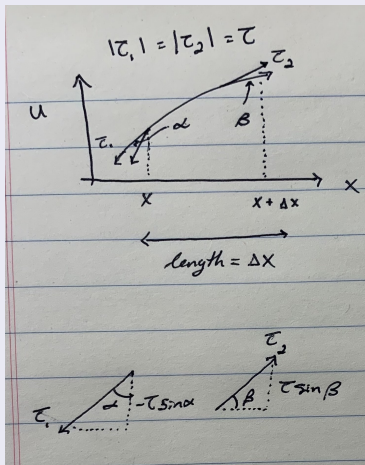 |τ₁| = |τ₂| = τ
τ₂
u
τ₁
α
β
x
x + Δx
x
length = Δx
τ₁
α
-τsinα
τ₂
β
τsinβ